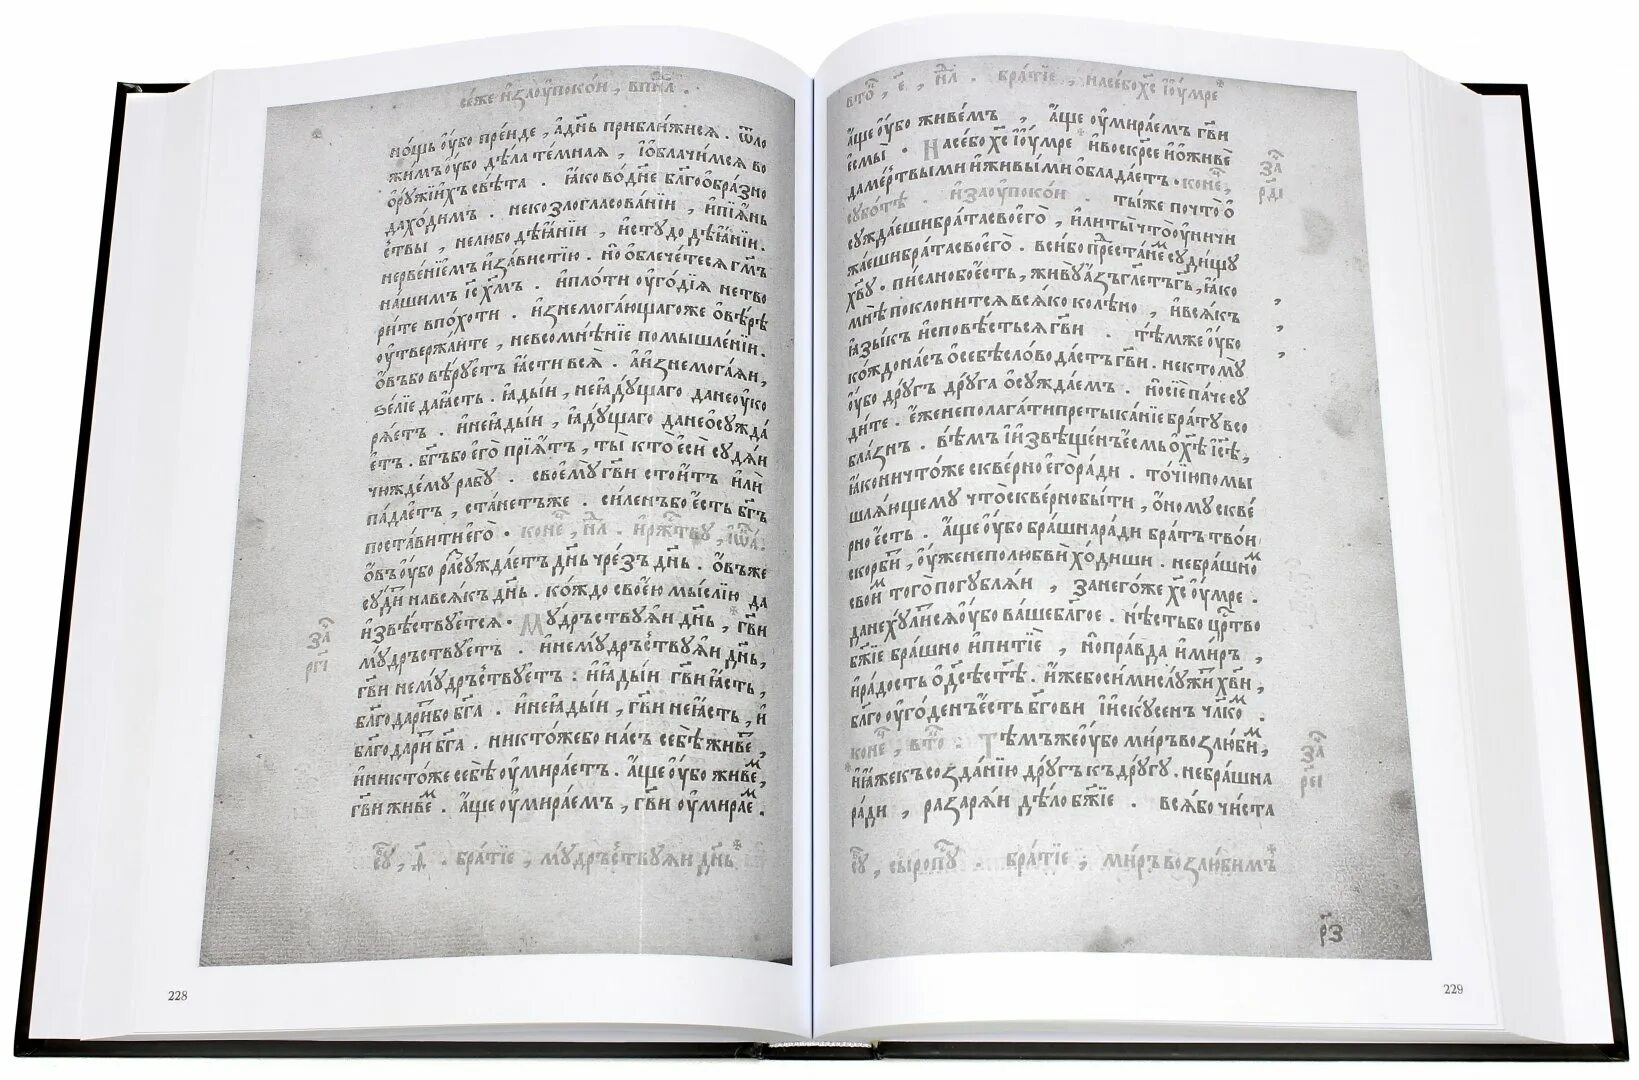 се́же и҆ заоу҆поко́и , в пн҃л .
но́щь оу҆́бо пре́иде , а҆ дн҃ь прибли́жися . ѿло
жи́мъ оу҆́бо дѣ́ла те́мная , і҆ ѡ҆блачи́мся во
ѻ҆рꙋ́жїи҆хъ свѣ́та . ꙗ҆́ко во дни́е бл҃гоѡ҆бра́зно
да хо́димъ . не козлогласова́нїи , и҆ пїꙗ҆́нь
ствы , не любодѣꙗ҆́нїи , и҆ стꙋдодѣꙗ҆́нїи .
не рве́нїемъ и҆ за́вистїю . но ѡ҆блече́теся гм҃ъ
на́шимъ іс҃ хм҃ъ . и҆ пло́ти оу҆го́дїꙗ не тво
ри́те в по́хоти . и҆знемога́ющаго же ѡ҆ вѣ́рѣ
оу҆твержа́ите , не в сомнѣ́нїе помышле́нїи .
ѻ҆́въ бо вѣ́рꙋетъ ꙗ҆́сти всѧ̀ . а҆ и҆знемога́ѧи ,
зе́лїе да ꙗ҆́стъ . ꙗ҆ды́и , не ꙗ҆дꙋ́щаго да не оу҆ко
рѧ́етъ . и҆ не ꙗ҆ды́и , ꙗ҆дꙋ́щаго да не ѡ҆сꙋжда
е҆тъ . бг҃ъ бо е҆го̀ прїѧ́тъ , ты̀ кто̀ е҆сѝ сꙋдѧ́и
чю́ждемꙋ рабꙋ̀ . своемꙋ̀ гв҃и стои́тъ и҆лѝ
па́даетъ , ста́нетъ же . си́ленъ бо е҆́сть бг҃ъ
поста́вити е҆го̀ . коне́ц , нл҃ . и҆ ржтвꙋ , і҆ѡа .
ѻ҆́въ оу҆́бо расꙋжда́етъ дн҃ь чрез̾ дн҃ь . ѻ҆́въ же
сꙋ́дитъ на всѧ́къ дн҃ь . ко́ждо свое́ю мы́слїю да
и҆звѣ́ствꙋется . Мꙋ́дръствꙋѧи дн҃ь , гв҃и
мꙋ́дръствꙋетъ . и҆ не мꙋ́дръствꙋѧи дн҃ь ,
гв҃и не мꙋ́дръствꙋетъ : и҆ ꙗ҆ды́и гв҃и ꙗ҆́сть ,
бл҃годари́т бо бг҃а . и҆ не ꙗ҆ды́и , гв҃и не ꙗ҆́сть , и҆
бл҃годари́т бг҃а . никто́же бо на́съ себѣ̀ живе́т ,
и҆ никто́же себѣ̀ оу҆мира́етъ . а҆́ще оу҆́бо живе́м ,
гв҃и живе́м . а҆́ще оу҆мира́емъ , гв҃и оу҆мира́ем .
за҃
рг҃і
сꙋ , д҃ . бра́тїе , мꙋ́дръствꙋѧи дн҃ь
228
вто , е҃ , нл҃ . бра́тїе , на се́бо хс҃ и҆ оу҆́мре
а҆́ще оу҆́бо живе́мъ , а҆́ще оу҆мира́емъ гв҃и
е҆смы̀ . На се́бо хс҃ и҆ оу҆́мре и҆ воскр҃се и҆ ѡ҆живе́
да ме́ртвыми и҆ живы́ми ѡ҆блада́етъ . коне́ц ,
сꙋбо́тѣ . и҆ заоу҆поко́и . ты́ же почто̀ ѻ҆
сꙋжда́еши бра́та своего̀ , и҆лѝ ты̀ что̀ оу҆ничи
жа́еши бра́та своего̀ . вси́ бо преста́нем сꙋди́щꙋ
хв҃ꙋ . пи́сано бо е҆́сть , живꙋ̀ а҆́зъ гл҃етъ гь҃ , ꙗ҆́ко
мнѣ̀ поклони́тся всѧ́ко колѣ́но , и҆ всѧ́къ
ꙗ҆зы́къ и҆сповѣ́сться гв҃и . тѣ́мже оу҆́бо
ко́ждо на́съ ѡ҆ себѣ̀ сло́во да́стъ гв҃и . не ктомꙋ̀
оу҆́бо дрꙋ́гъ дрꙋ́га ѡ҆сꙋжда́емъ . но сїѐ па́че сꙋ
ди́те . е҆́же не полага́ти претыка́нїе бра́тꙋ в со
бла́знъ . вѣ́мъ и҆ и҆звѣ́щенъ е҆́смь ѡ҆ хѣ҃ іс҃ѣ ,
ꙗ҆́ко ничто́же скве́рно е҆го̀ ра́ди . то́чїю помы
шлѧ́ющемꙋ что̀ скве́рно бы́ти , ѻ҆номꙋ скве́
рно е҆́сть . а҆́ще оу҆́бо бра́шна ра́ди бра́тъ тво́и
скорби́т , оу҆жѐ не по любви́ хо́диши . не бра́шном
свои́м того̀ погꙋблѧ́и , за него́же хс҃ оу҆́мре .
да не хꙋ́лится оу҆́бо ва́ше бл҃го́е . нѣ́сть бо црт҃во
бж҃їе бра́шно и҆ питїѐ , но пра́вда и҆ ми́ръ ,
и҆ ра́дость ѡ҆ дс҃ѣ ст҃ѣ . и҆́же бо си́ми слꙋ́жит хв҃и ,
бл҃гоꙋго́денъ е҆́сть бг҃ови и҆ и҆скꙋ́сенъ чл҃ком .
коне́ц , вто : Тѣ́мъже оу҆́бо ми́ръ возлю́бим ,
и҆ ꙗ҆́же къ созда́нїю дрꙋ́гъ къ дрꙋ́гꙋ . не бра́шна
ра́ди , разарѧ́и дѣ́ло бж҃їе . всѧ́ бо чи́ста
за҃
рд҃і
за҃
ре҃і
сꙋ , сыропꙋ . бра́тїе , ми́ръ возлю́бимъ
рз҃
229